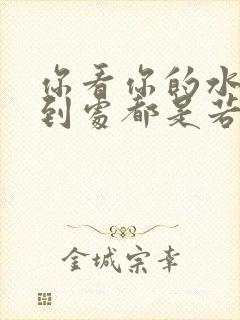 你看你的水
到處都是若
金城宗幸